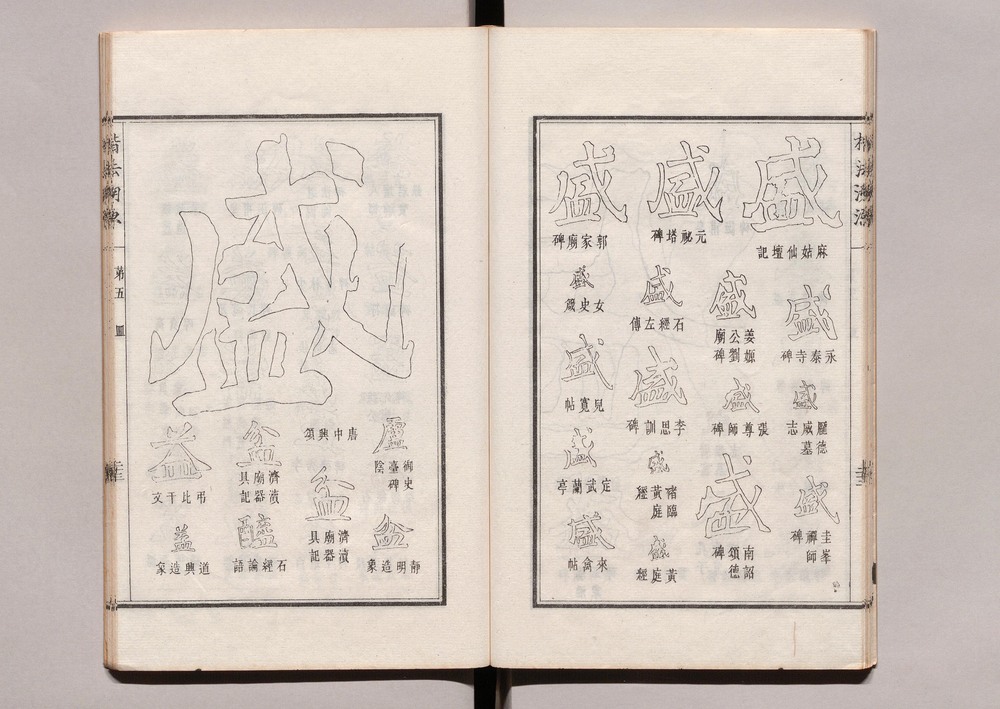 楷法溯源
盛
麻姑仙壇記
盛
永泰寺碑
盛
盛
圭峯禪師碑
盛
姜嫄公劉廟碑
盛
張尊師碑
盛
南詔德頌碑
盛
元祕塔碑
盛
石經左傳
盛
李思訓碑
盛
褚臨黃庭經
盛
黃庭經
盛
郭家廟碑
盛
女史箴
盛
兒寬帖
盛
定武蘭亭
盛
來禽帖
盛
唐中興頌
御史臺陰碑
靜明造象
盆
濟瀆廟器具記
盆
濟瀆廟器具記
醯
石經論語
益
弔比干文
益
道興造象
楷法溯源
第五
皿